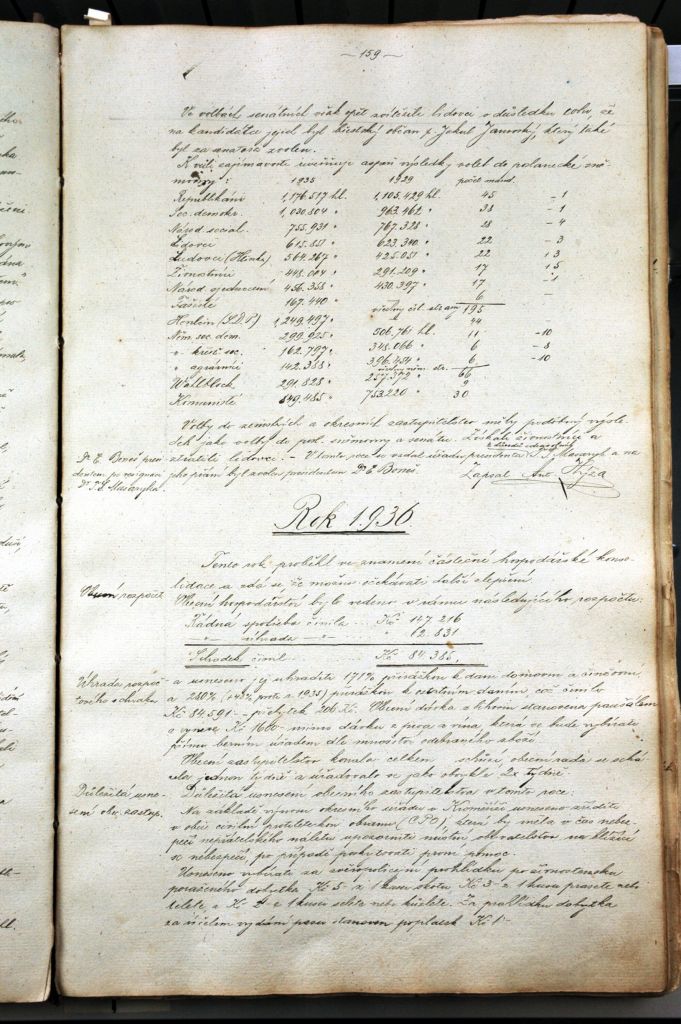 — 159 —
Ve volbách senátních však opět zvítězili lidovci v důsledku toho, že
na kandidátce jejich byl zdejší občan p. Jakub Janovský, který také
byl za senátora zvolen.
K vůli zajímavosti uveřejňuje aspoň výsledky voleb do poslanecké sně-
movny: 1935 1929 počet mand.
Republikáni 1,176.517 hl. 1,105.429 hl. 45 – 1
Soc. demokr. 1,030.804 " 963.462 " 38 – 1
Národ. social. 755.931 " 767.328 " 28 – 4
Lidovci 615.851 " 623.340 " 22 – 3
Ludovci (Hlinka) 564.267 " 425.051 " 22 + 3
Živnostníci 448.004 " 291.209 " 17 + 5
Národ. sjednocení 456.355 " 430.397 " 17 – 1
Fašisté 167.440 " 6 –
všechny čsl. strany 195
Henlein (S.D.P.) 1,249.497 " 44 –
Něm. soc. dem. 299.925 " 506.761 hl. 11 – 10
" křesť. soc. 162.797 " 348.066 " 6 – 8
" agrárníci 142.388 " 396.454 " 6 – 10
všechny něm. str. 66
Wahlblock 291.828 " 257.372 " 9
Komunisté 849.485 " 753.220 " 30
Volby do zemských a okresních zastupitelstev měly podobný výsle-
dek jako volby do posl. sněmovny a senátu. Získali živnostníci a
ztratili lidovci. – V tomto roce se vzdal úřadu presidenta T. G. Masaryk a na
z důvodů zdravotních
jeho přání byl zvolen presidentem Dr E. Beneš. Zapsal Ant. Hýža
Dr. E. Beneš presi-
dentem po resignaci
Dr. T. G. Masaryka.
Rok 1936.
Tento rok proběhl ve znamení částečné hospodářské konso-
lidace a zdá se že možno očekávati další zlepšení.
Obecní rozpočet
Obecní hospodářství bylo vedeno v rámci následujícího rozpočtu:
Řádná spotřeba činila ... Kč 147.216
—"— úhrada —"— " 62.831
Schodek činil ... Kč 84.385,
Úhrada rozpoč-
tového schodku.
a usneseno jej uhraditi 171% přirážkou k dani domovní a činžovní,
a 280% přirážkou k ostatním daním, což činilo
Kč 84.591 – přebytek 206 Kč. Obecní dávka z lihovin stanovena paušálem
o výnosu Kč 1600 – mimo dávku z piva a vína, která se bude vybírati
přímo berním úřadem dle množství odebraného zboží.
Obecní zastupitelstvo konalo celkem .. schůzí, obecní rada se schá-
zela jednou týdně a úřadovalo se jako obvykle 2x týdně.
Důležitá usne-
sení obec. zastup.
Důležitá usnesení obecního zastupitelstva v tomto roce:
Na základě výnosu okresního úřadu v Kroměříži usneseno zříditi
v obci civilní protileteckou obranu (C.P.O.) která by měla v čas nebez-
pečí nepřátelského náletu upozorniti místní obyvatelstvo na blížící
se nebezpečí, po případě poskytovati první pomoc.
Usneseno vybírati za zvěropolicejní prohlídku po živnostensku
poraženého dobytka Kč 5 – z 1 kusu skotu Kč 3 – z 1 kusu prasete nebo
telete, a Kč 2 – z 1 kusu selete nebo kůzlete. Za prohlídku dobytka
za účelem vydání pasu stanoven poplatek Kč 1 –